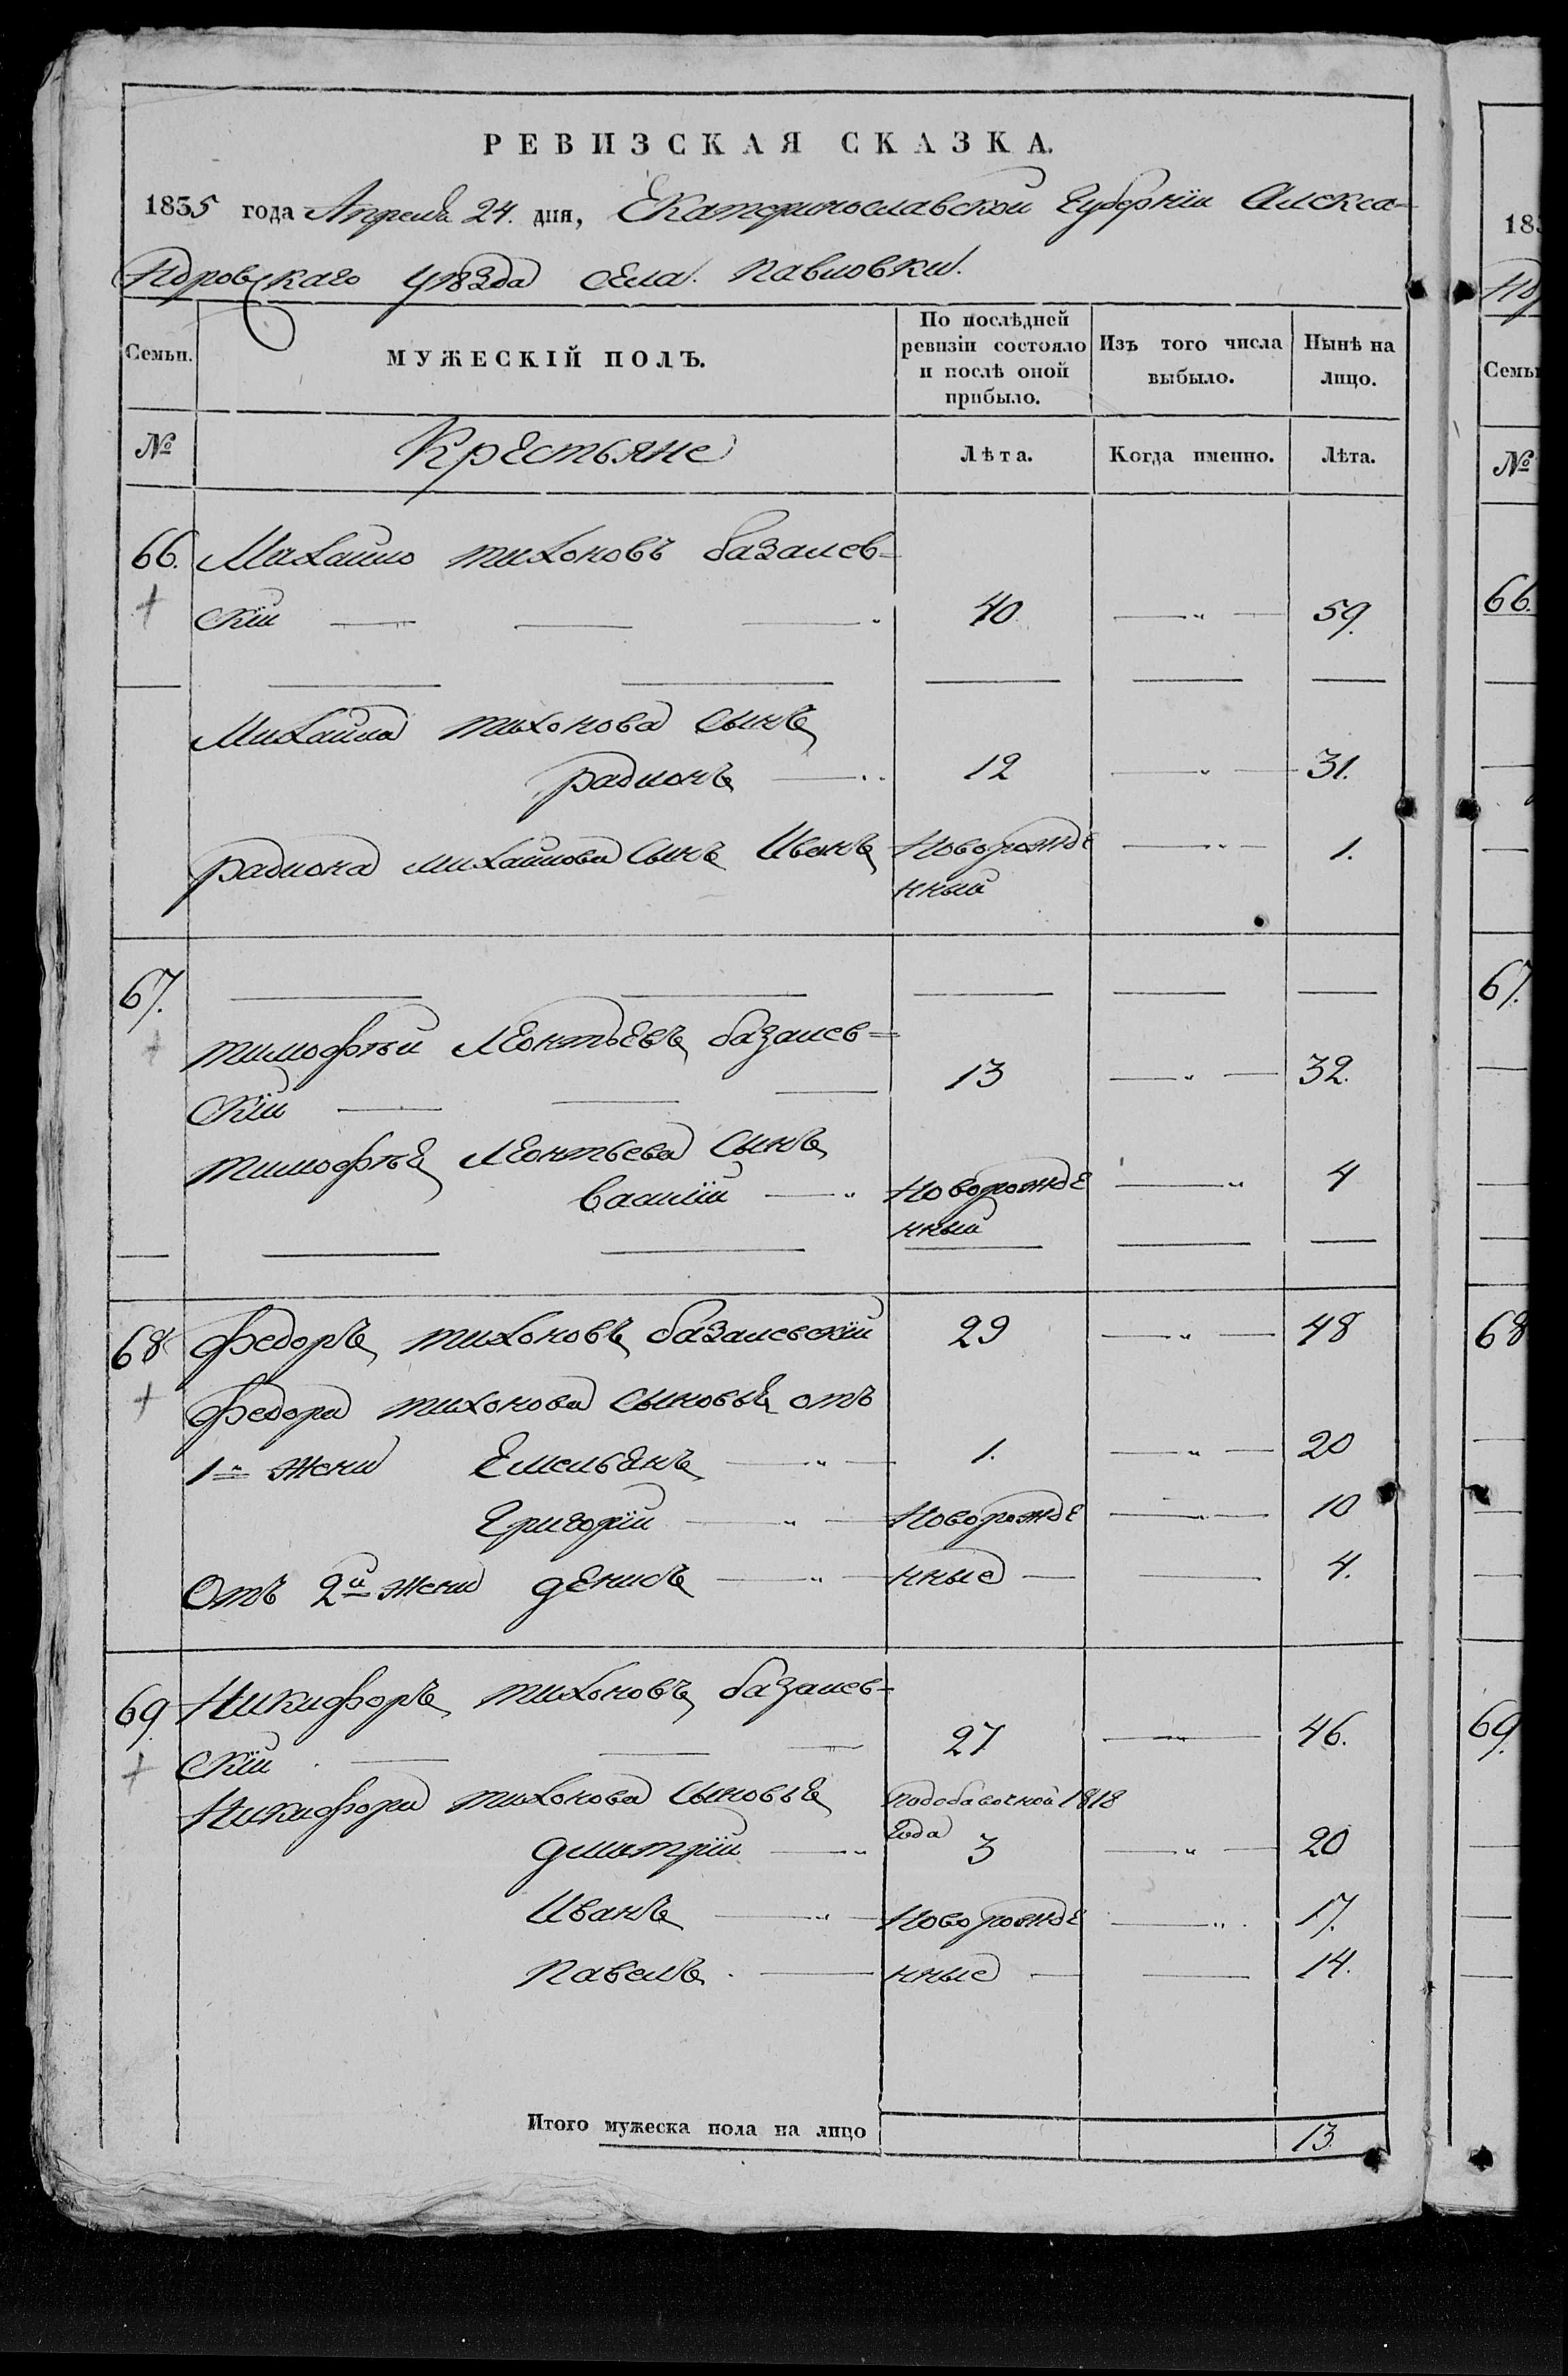 РЕВИЗСКАЯ СКАЗКА.
1835 года Апреля 24. дня, Екатеринославской Губернiи Алекса-
ндровскаго уѣзда села Павловки.
Семьи. МУЖЕСКIЙ ПОЛЪ. По послѣдней ревизiи состояло и послѣ оной прибыло. Изъ того числа выбыло. Нынѣ на лицо.
№ Крестьяне Лѣта. Когда именно. Лѣта.
66. Михайло тихоновъ базалев-
скiй 40 59.
Михайла тихонова сынъ
радионъ 12 31.
радиона михайлова сынъ Иванъ Новорожде 1.
нный
67.
тимофѣй леонтьевъ базалев-
скiй 13 32.
тимофѣя леонтьева сынъ
василiй Новорожде 4
нный
68 федоръ тихоновъ базалевскiй 29 48
федора тихонова сыновья отъ
1й жены Емельянъ 1. 20
Григорiй Новорожде 10
отъ 2й жены денисъ нные 4.
69 Никифоръ тихоновъ базалев-
скiй 27 46.
Никифора тихонова сыновья подобавочной 1818
года
дмитрiй 3 20
Иванъ Новорожде 17.
павелъ нные 14.
Итого мужеска пола на лицо 13.
183
Семьи
№
66.
67.
68
69.